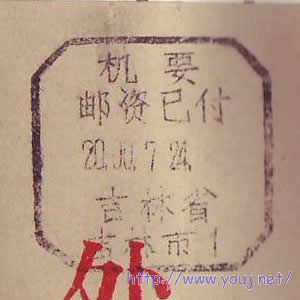 机要
邮资已付
吉林省
吉林市1
http://www.youj.net/
外